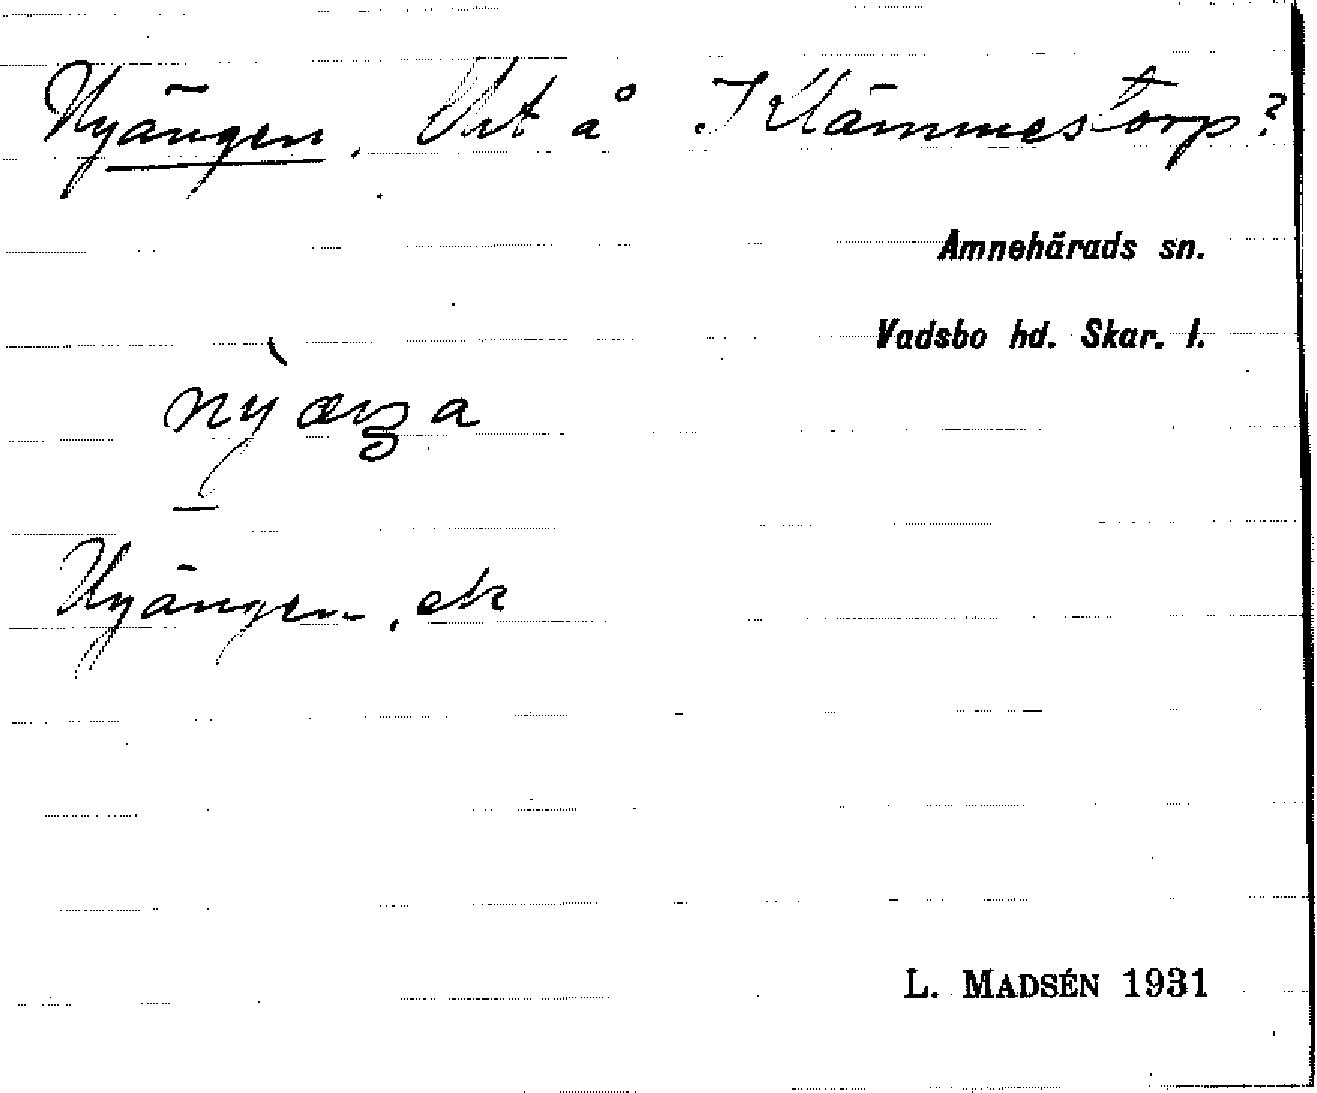 Nyängen. Urt å Klämmestorp?
Amnehärads sn.
Vadsbo hd. Skar. l.
nỳæŋa
Nyängen, ek
L. MADSÉN 1931